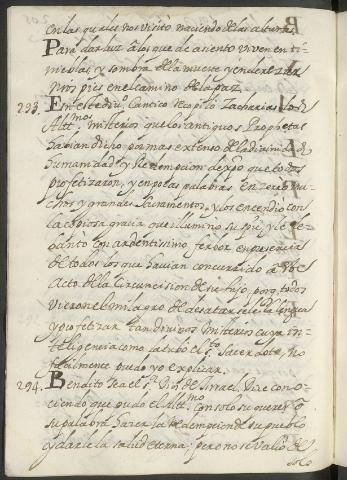 en las quales nos visito naciendo de las alturas
Para dar luz a los que de asiento viven en ti-
nieblas, y sombra de la muerte y enderezar
nros pies en el camino de la paz.
293. En este diuino Cantico recopilo Zacharias los
Altmos misterios que los antiguos Prophetas
hauian dicho por mas extenso de la diuinidad
humanidad y Redempcion de xpo que todos
profetizaron, y en pocas palabras encerro mu-
chos y grandes Sacramentos, y los entendio con
la copiosa gracia que illumino su spu, y le le-
banto con ardentissimo feruor en presencia
de todos los que hauian concurrido al
Acto de la Circuncision de su hijo, porq todos
vieron el milagro de desatarsele la lengua
y profetizar tan diuinos misterios cuya in-
teligencia como la tubo el sto Sacerdote, no
facilmente puedo yo explicar.
294. Bendito sea el sr Dios de Israel. Dice cono-
ciendo que pudo el Altmo con solo su querer o
su palabra hazer la Redempcion de su pueblo
y darle la salud eterna; pero no se valio de
solo